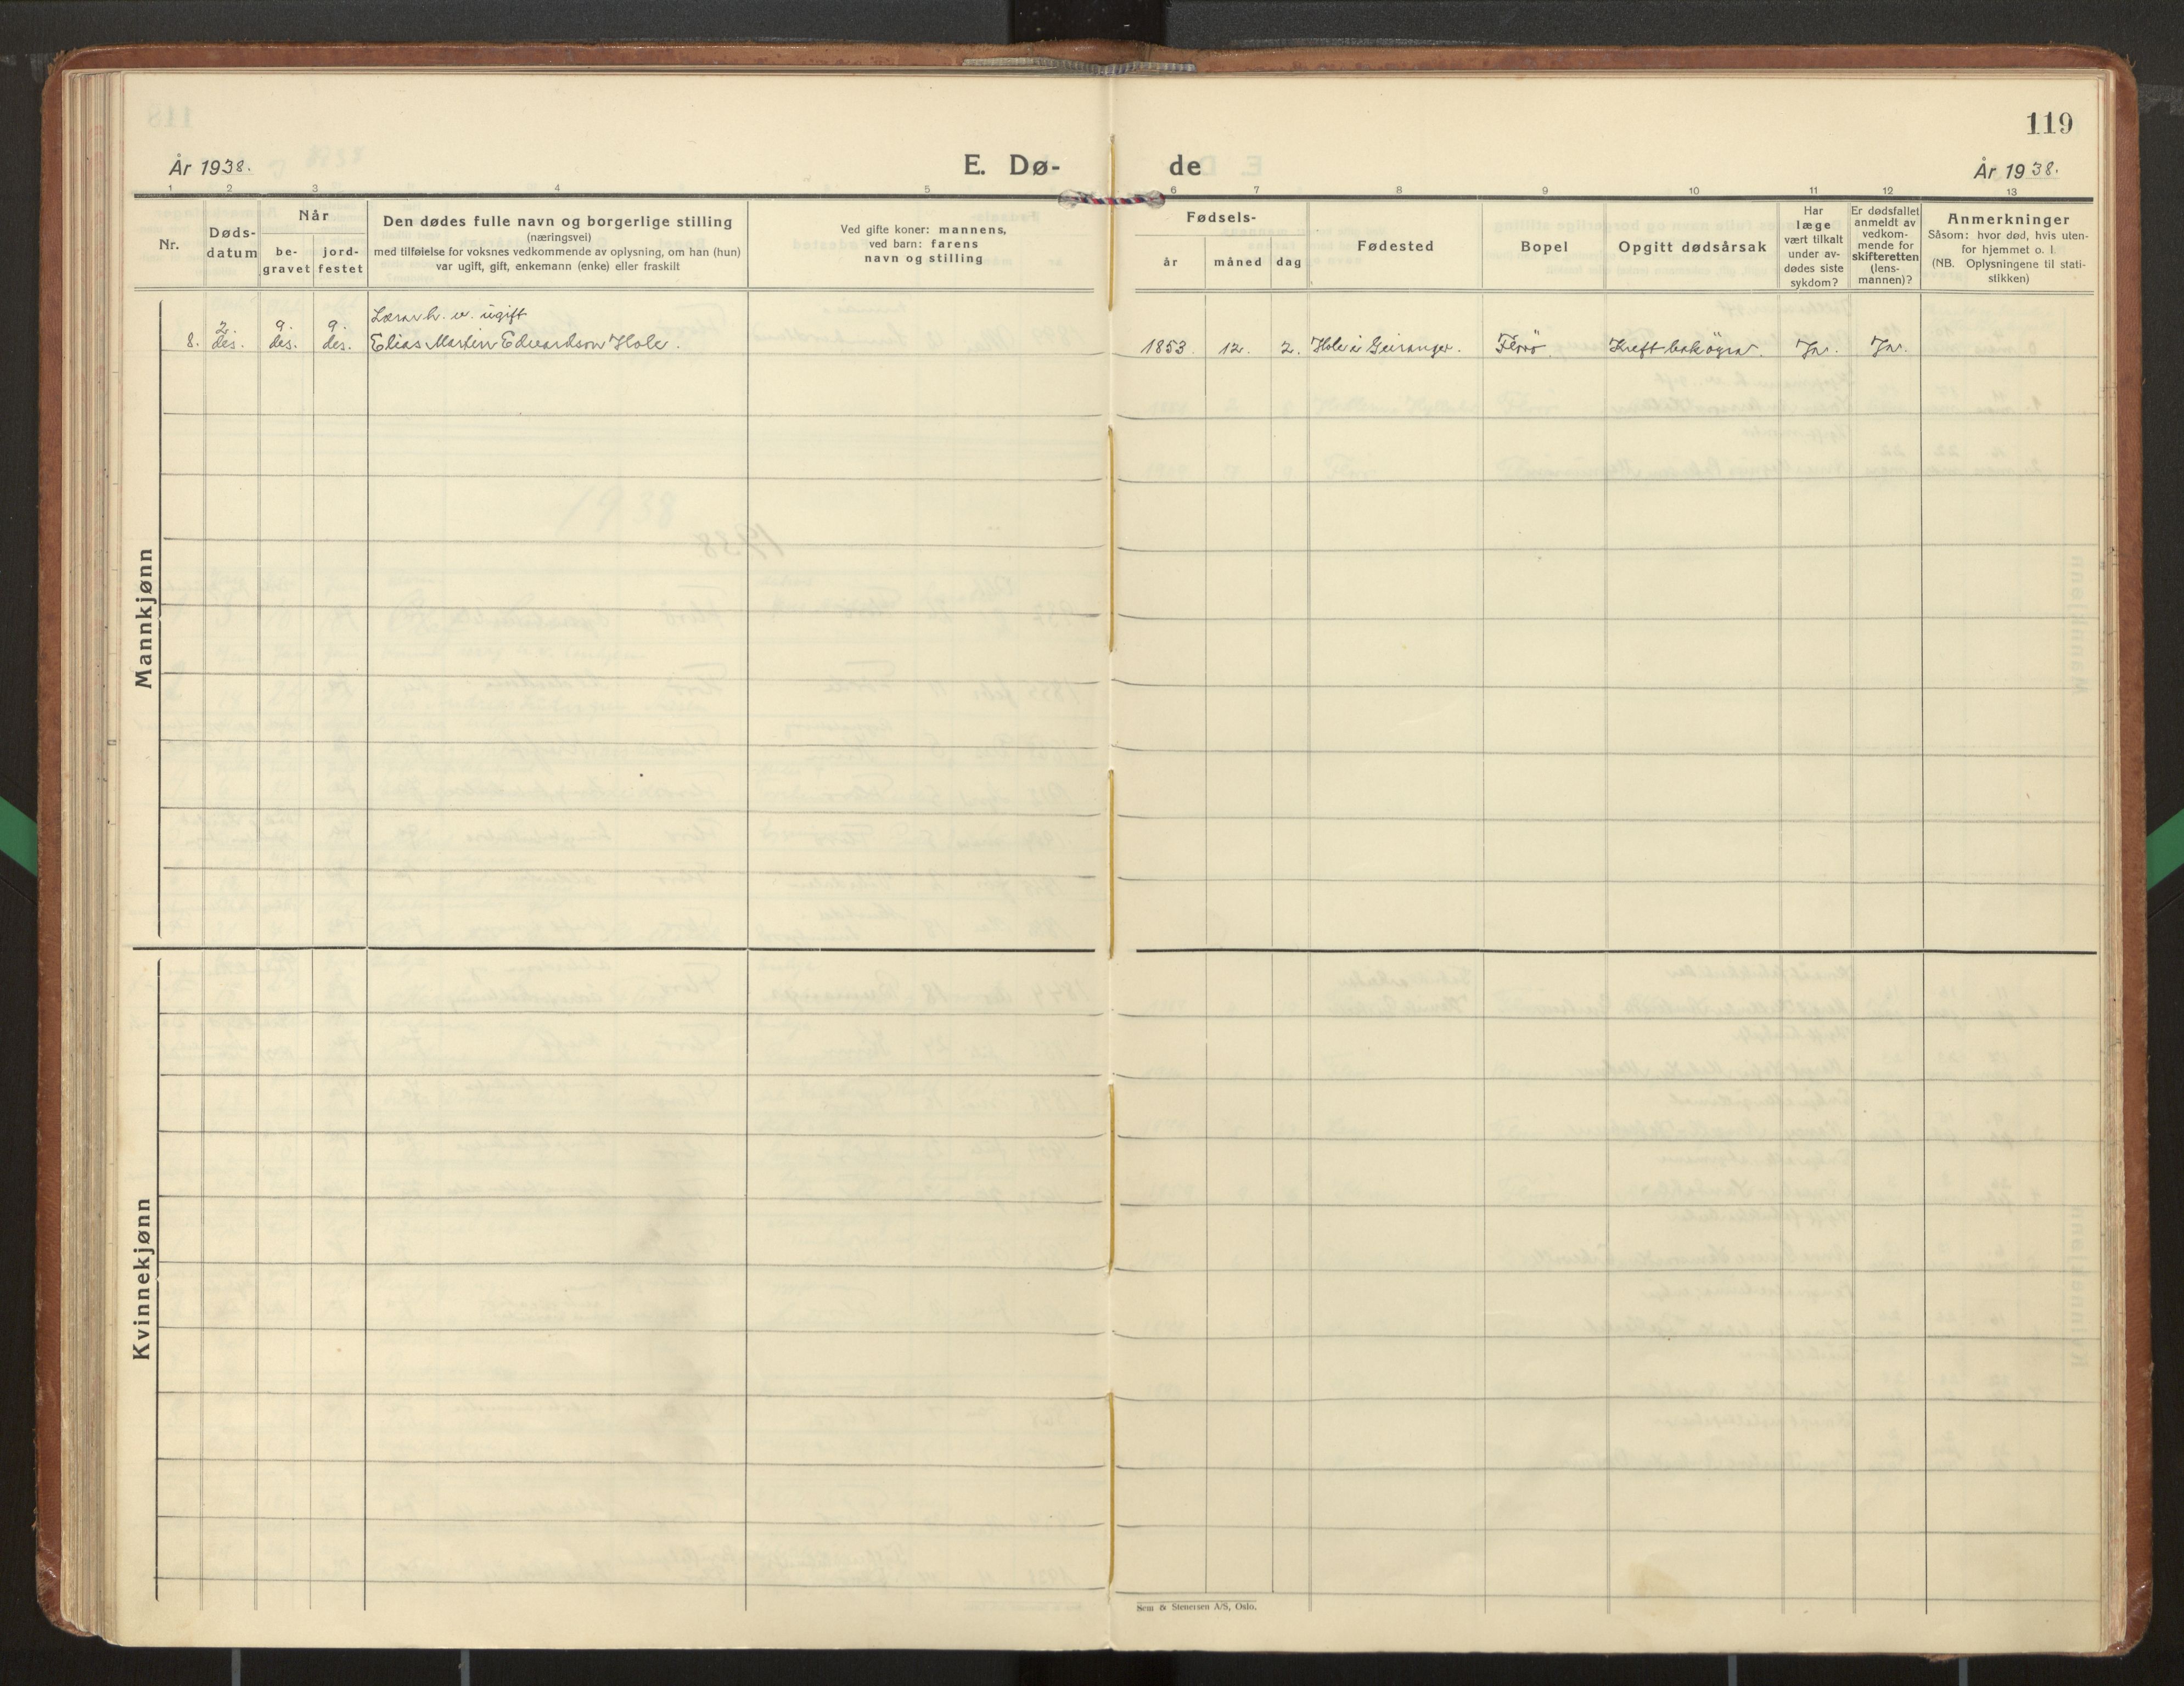 119
År 1938.
E. Dø-
de
År 1938.
1 2 3 4 5 6 7 8 9 10 11 12 13
Nr.
Døds-
datum
Når
be-
gravet
jord-
festet
Den dødes fulle navn og borgerlige stilling
(næringsvei)
med tilføielse for voksnes vedkommende av oplysning, om han (hun)
var ugift, gift, enkemann (enke) eller fraskilt
Ved gifte koner: mannens,
ved barn: farens
navn og stilling
Fødsels-
år
måned
dag
Fødested
Bopel
Opgitt dødsårsak
Har
læge
vært tilkalt
under av-
dødes siste
sykdom?
Er dødsfallet
anmeldt av
vedkom-
mende for
skifteretten
(lens-
mannen)?
Anmerkninger
Såsom: hvor død, hvis uten-
for hjemmet o. l.
(NB. Oplysningene til stati-
stikken)
Mannkjønn
2. 9. 9. Lærar h. v. ugift
8. des. des. des. Elias Martin Edvardson Hole. 1853 12. 2. Hole i Geiranger. Florö. Kreft bak öyra. Ja. Ja.
Kvinnekjønn
Sem & Stenersen A/S, Oslo.